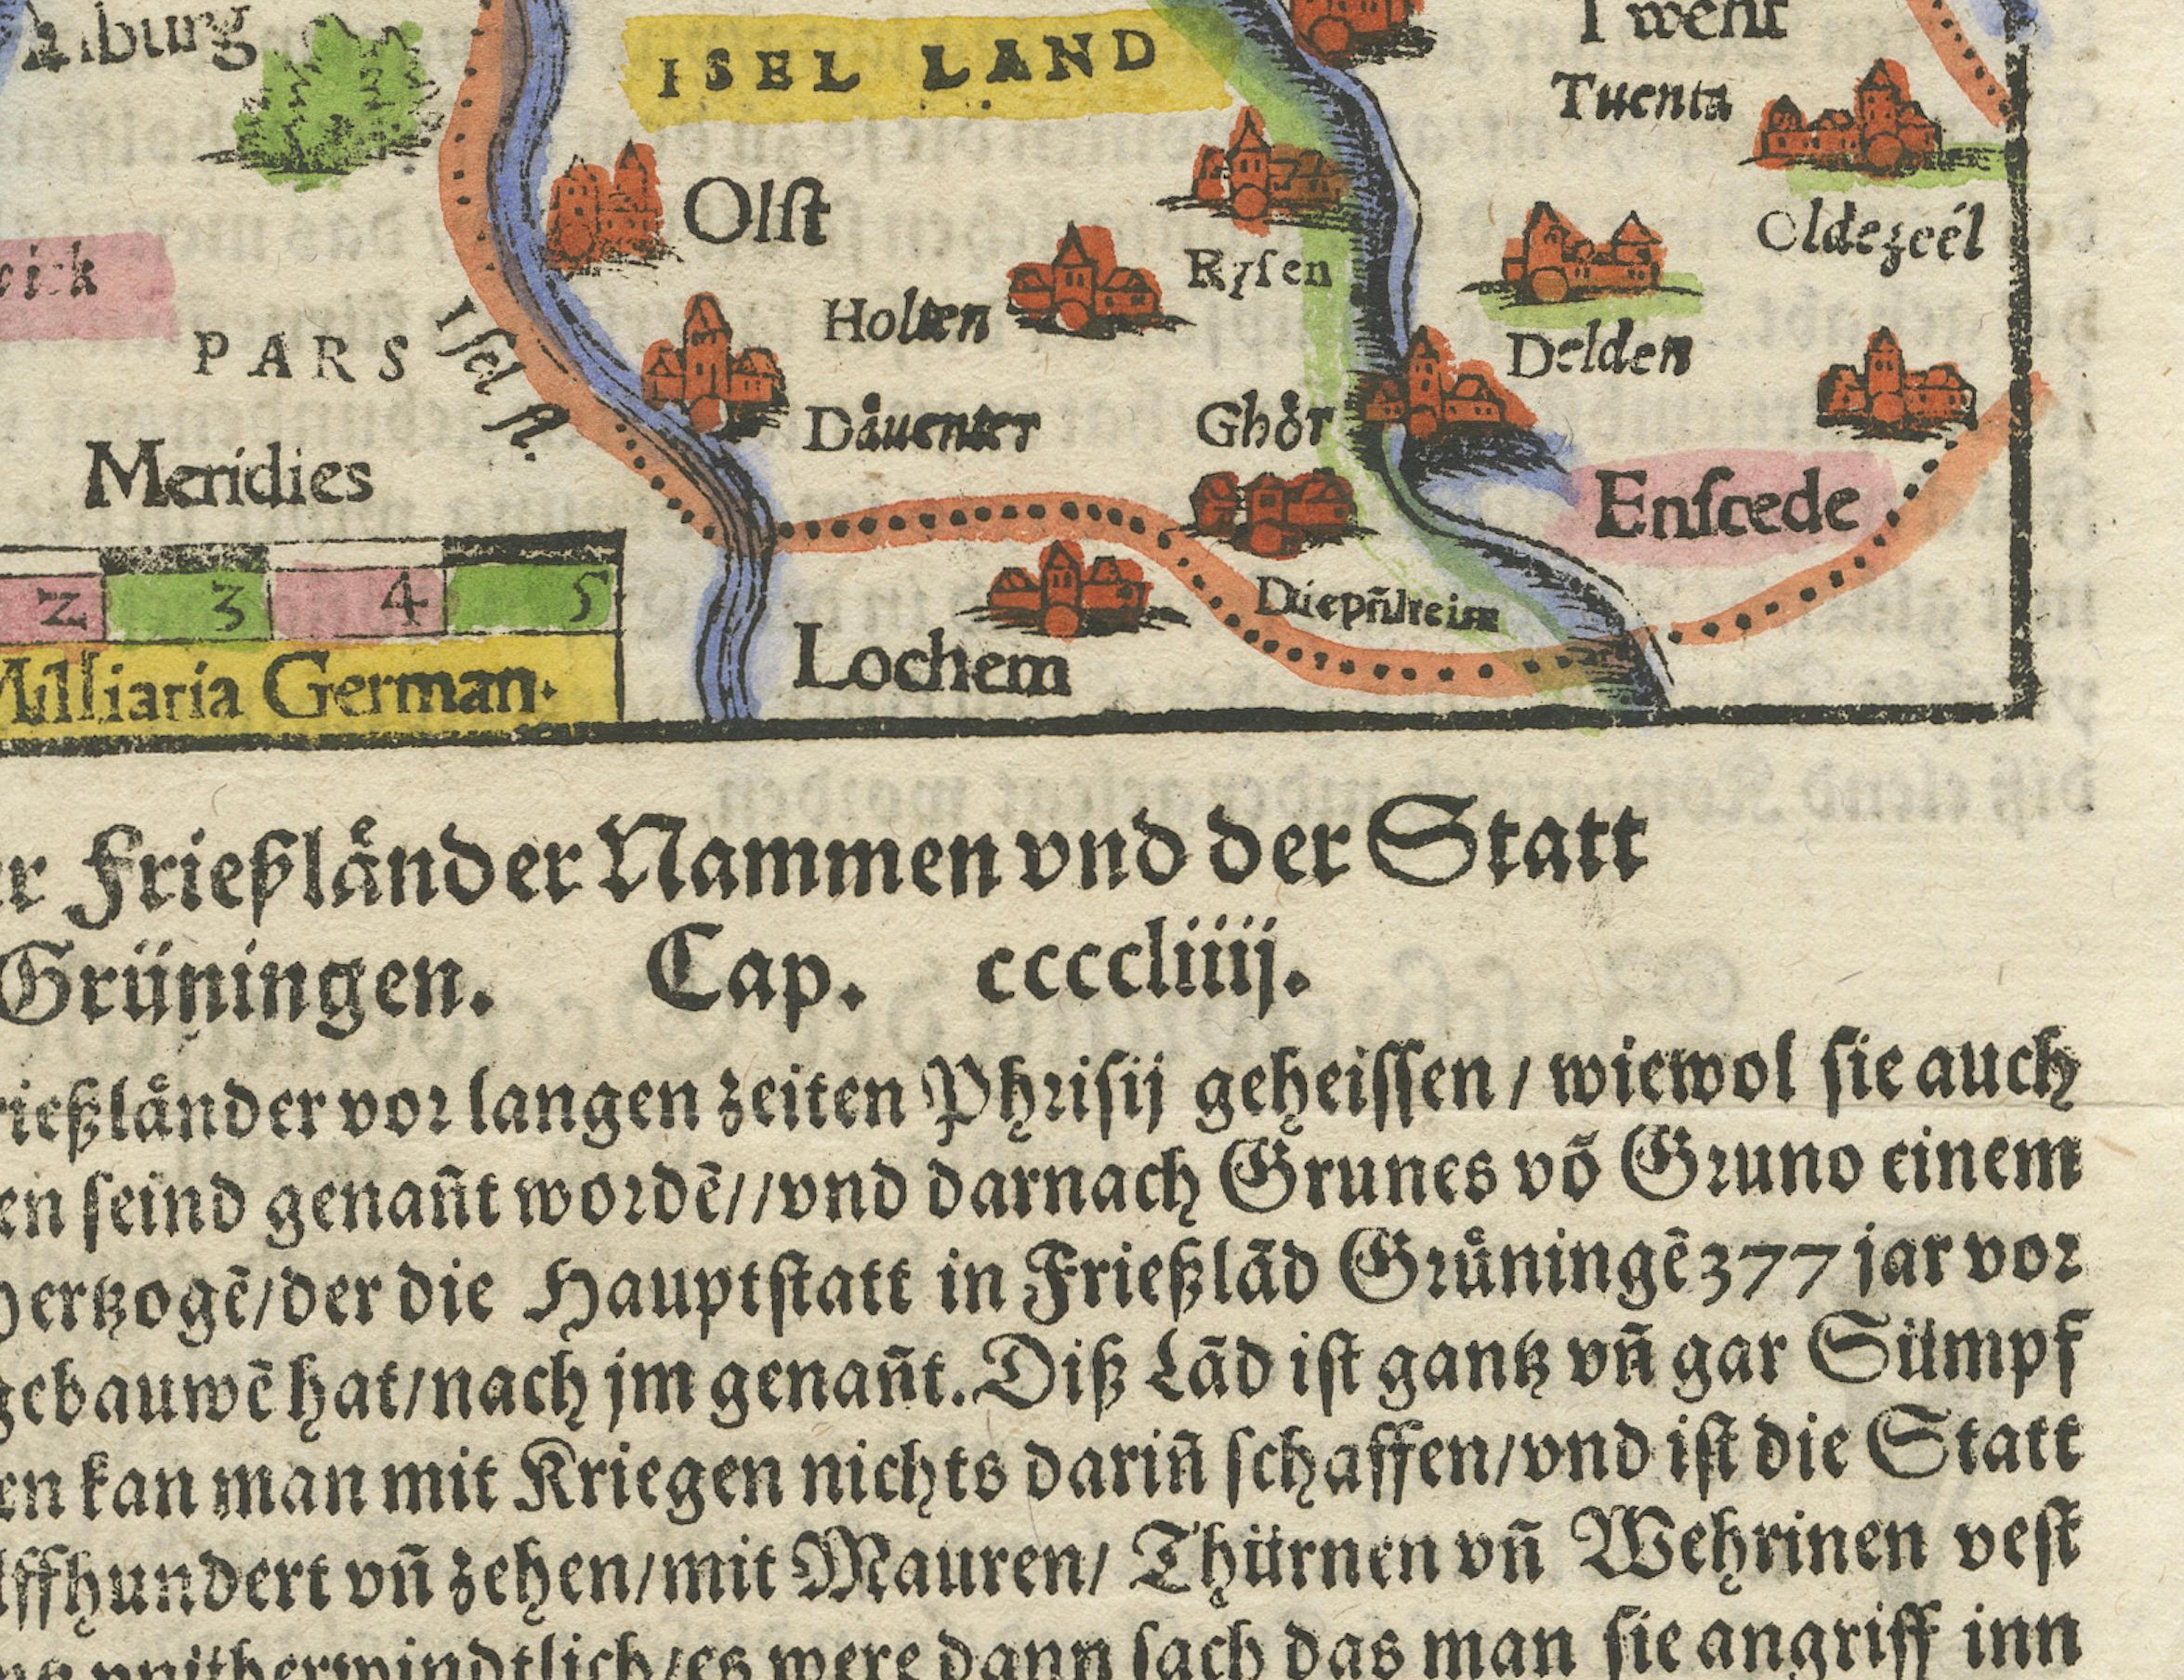 ISEL LAND
Twent
Tuenta
Oldezeel
Olſt
Ryſen
Holten
Delden
PARS
Iſel fl.
Dåuenter
Ghör
Meridies
Enſcede
2 3 4 5
Milliaria German.
Lochem
Düepñheim
Frießlånder Nammen vnd der Statt
Grüningen. Cap. ccccliiij.
rießlånder vor langen zeiten Phriſij geheiſſen / wiewol ſie auch
en ſeind genañt wordē//vnd darnach Grunes võ Gruno einem
hertzogē/der die Hauptſtatt in Frießlãd Grůningē 377 jar vor
gebauwē hat/nach jm genañt. Diß Lãd iſt gantz vñ gar Sümpf
en kan man mit Kriegen nichts dariñ ſchaffen/vnd iſt die Statt
lffhundert vñ zehen/mit Mauren/ Thürnen vñ Wehrinen veſt
vnüberwindtlich/es were dann ſach das man ſie angriff inn